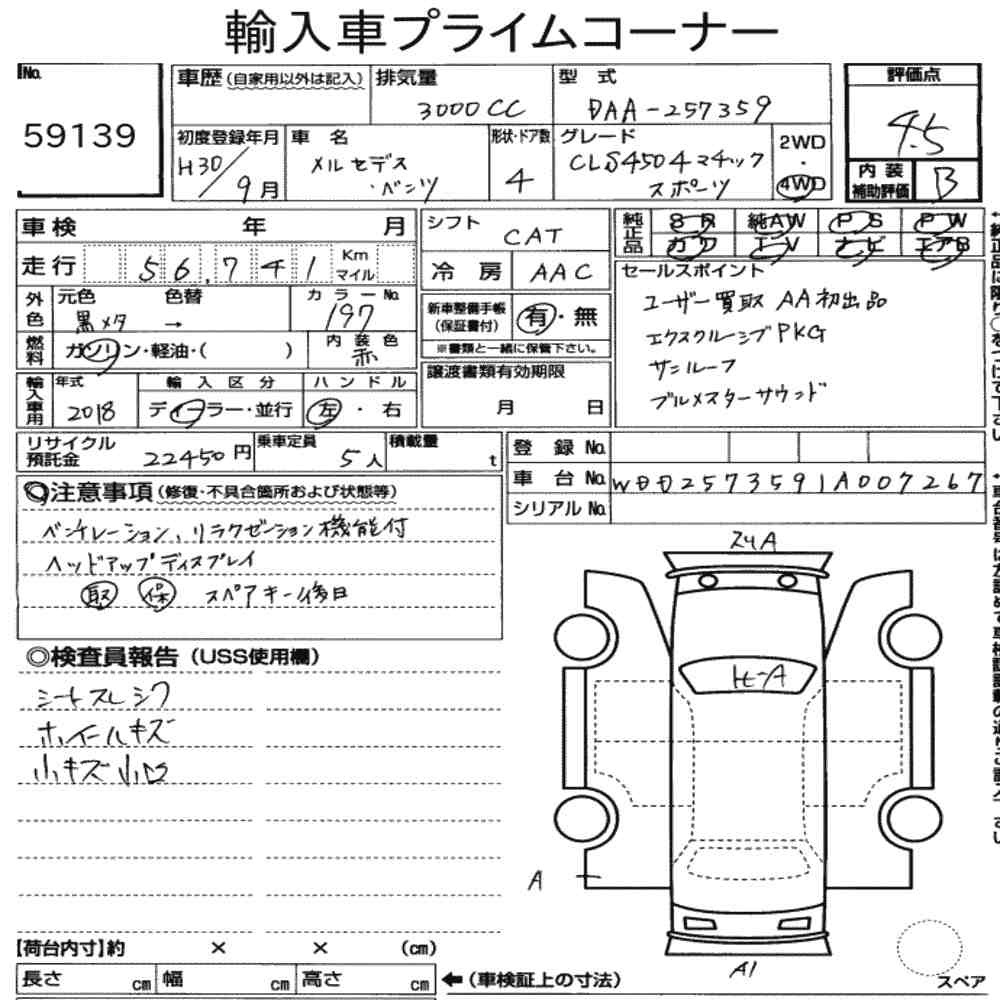 輸入車プライムコーナー
No.
59139
車歴 (自家用以外は記入)
排気量
3000CC
型 式
DAA-257359
評価点
4.5
初度登録年月
H30/9月
車 名
メルセデス・ベンツ
形状・ドア数
4
グレード
CLS450 4マチック
スポーツ
2WD
・
4WD
内 装
補助評価
B
車検 年 月
シフト
CAT
純正品
SR 純AW PS PW
カワ TV ナビ エアB
走行 56,741 Km
マイル
冷 房 AAC
セールスポイント
ユーザー買取 AA初出品
エクスクルーシブPKG
サンルーフ
ブルメスターサウンド
外色
元色 色替
黒メタ →
カラーNo.
197
新車整備手帳
(保証書付)
有・無
※書類と一緒に保管下さい。
燃料
ガソリン・軽油・( )
内 装 色
赤
譲渡書類有効期限
月 日
輸入車用
年式
2018
輸 入 区 分
ディーラー・並行
ハ ン ド ル
左 ・ 右
リサイクル
預託金
22450円
乗車定員
5人
積載量
t
登 録 No.
車 台 No. WDD2573591A007267
シリアル No.
◎注意事項 (修復・不具合箇所および状態等)
ベンチレーション、リラクゼーション機能付
ヘッドアップディスプレイ
取 保 スペアキー後日
◎検査員報告 (USS使用欄)
シートスレ シワ
ホイールキズ
小キズ 小凹
A
A1
スペア
【荷台内寸】約 × × (cm)
長さ cm 幅 cm 高さ cm
←(車検証上の寸法)